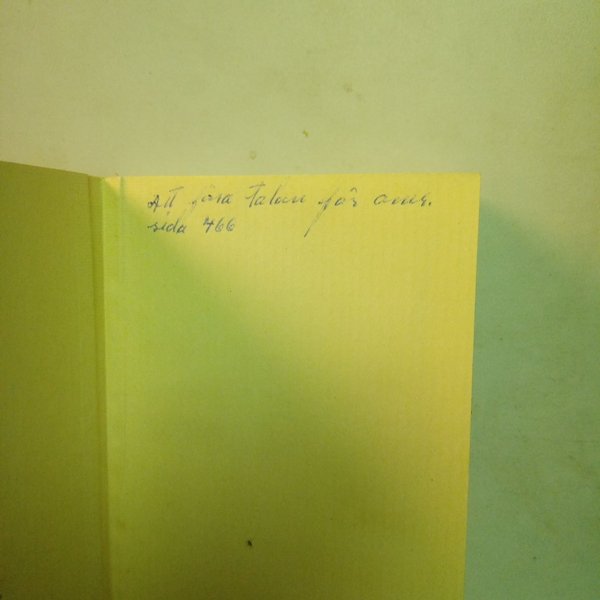 Att föra talan för
sida 466